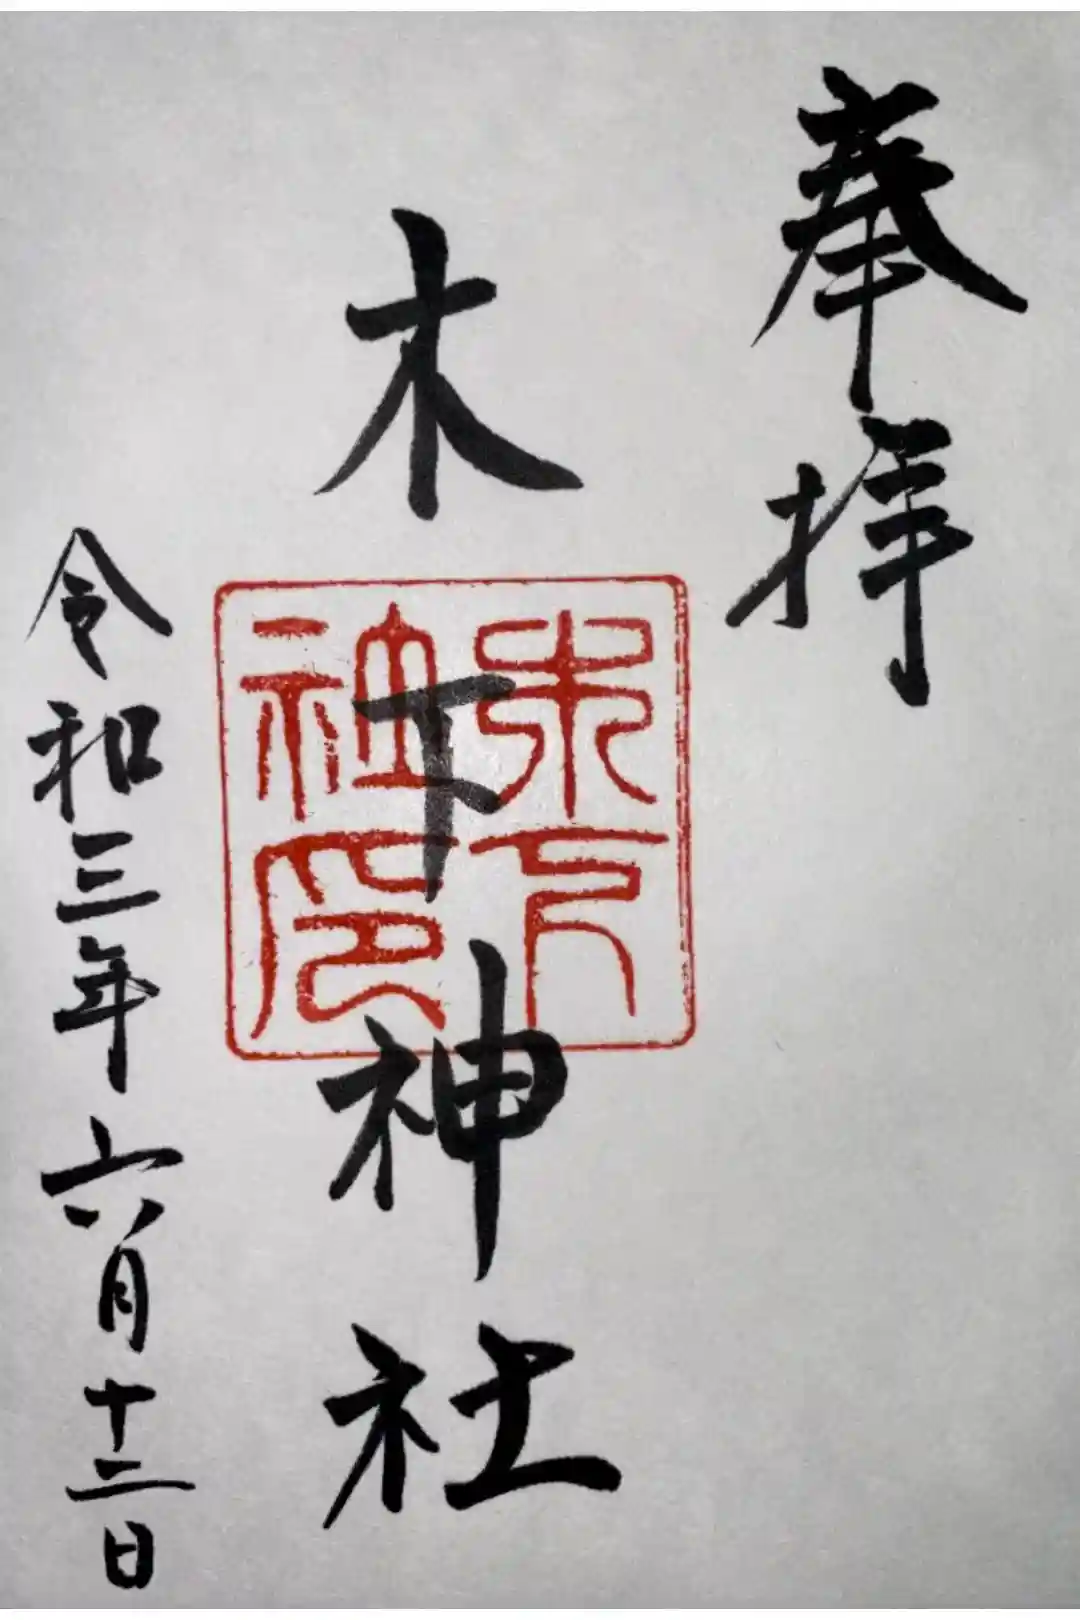 奉拝
木下神社
木下
社印
令和三年六月十二日